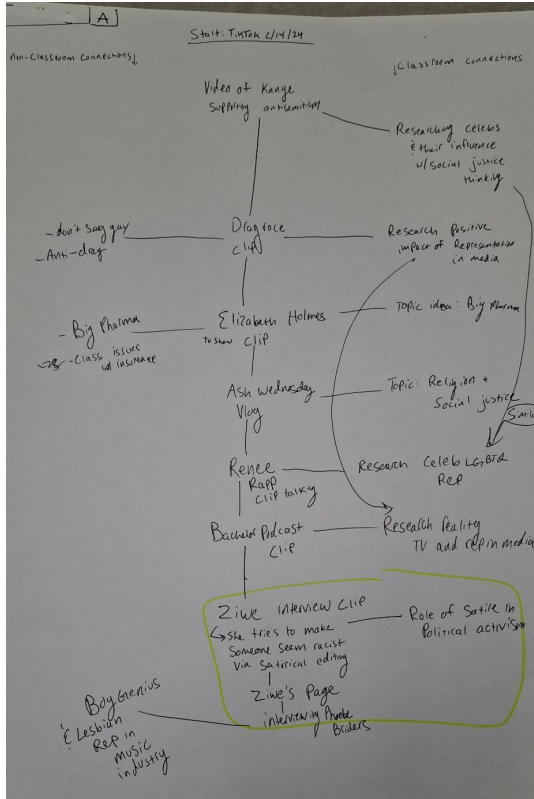 A
Start: TikTok 2/14/24
non-Classroom connections↓
↓Classroom connections
Video of Kanye
Supporting antisemitism
Researching celebs
& their influence
w/social justice
thinking
- don't say gay
- Anti-drag
Dragrace
Clip
Research Positive
impact of Representation
in media
- Big Pharma
- Class issues
w/ insurance
Elizabeth Holmes
TV show Clip
Topic idea: Big Pharma
Ash Wednesday
Vlog
Topic: Religion +
Social justice
Renee
Rapp
Clip talking
Research Celeb LGBTQ
Rep
Bachelor Podcast
Clip
Research Reality
TV and rep in media
Ziwe interview Clip
↳ She tries to make
Someone seem racist
via satirical editing
Role of Satire in
Political activism
Ziwe's Page
interviewing Phoebe
Briders
Boy Genius
& Lesbian
Rep in
music
industry